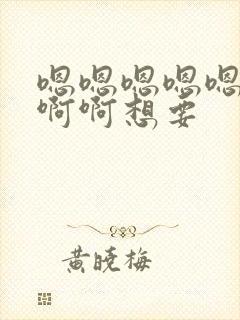 嗯嗯嗯嗯嗯
啊啊想要
黄晓梅